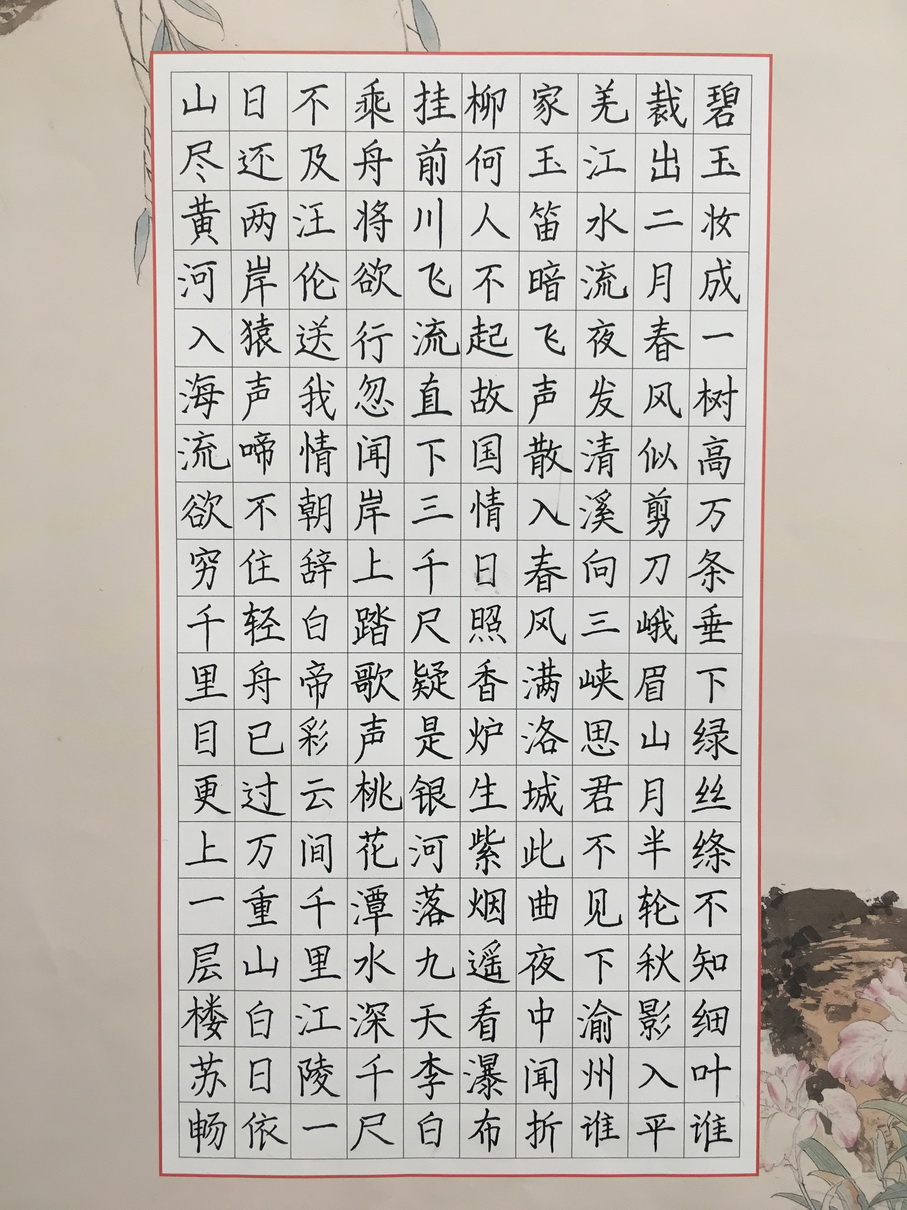 碧玉妆成一树高万条垂下绿丝绦不知细叶谁
裁出二月春风似剪刀峨眉山月半轮秋影入平
羌江水流夜发清溪向三峡思君不见下渝州谁
家玉笛暗飞声散入春风满洛城此曲夜中闻折
柳何人不起故国情日照香炉生紫烟遥看瀑布
挂前川飞流直下三千尺疑是银河落九天李白
乘舟将欲行忽闻岸上踏歌声桃花潭水深千尺
不及汪伦送我情朝辞白帝彩云间千里江陵一
日还两岸猿声啼不住轻舟已过万重山白日依
山尽黄河入海流欲穷千里目更上一层楼苏畅